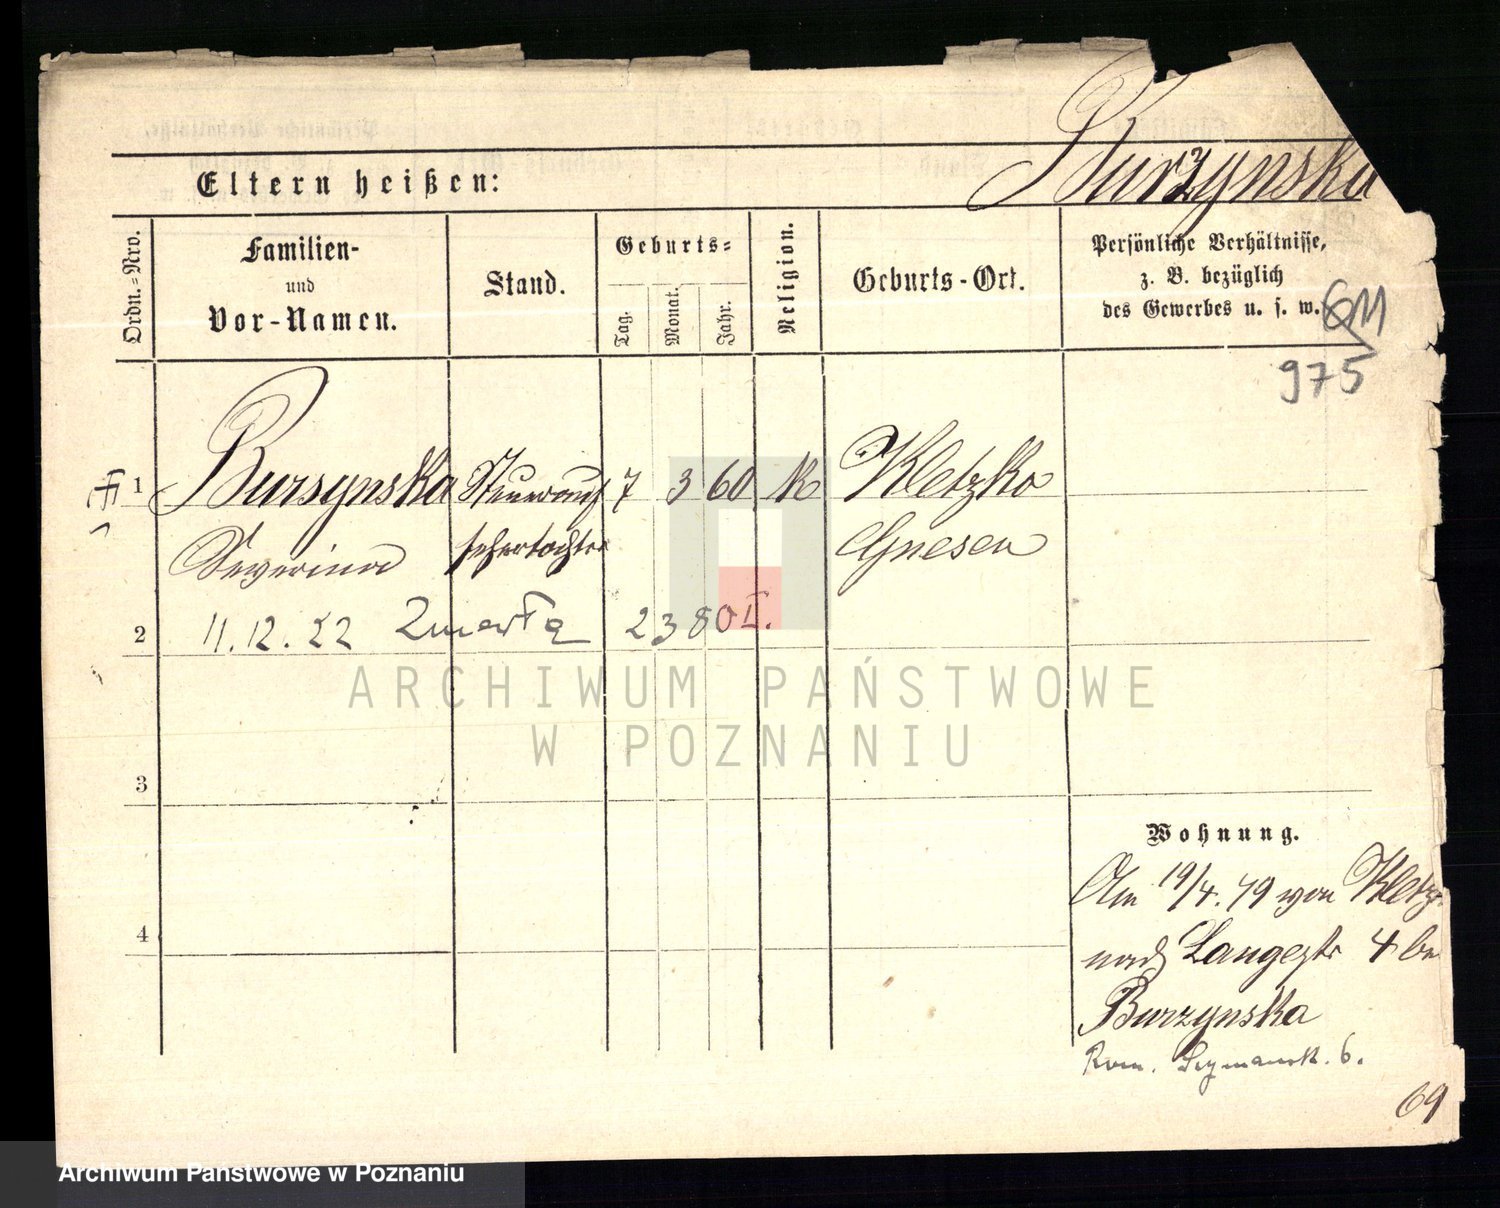 Burzynska
Eltern heißen:
Ordn.-Nro.
Familien-
und
Vor-Namen.
Stand.
Geburts-
Tag.
Monat.
Jahr.
Religion.
Geburts-Ort.
Persönliche Verhältnisse,
z. B. bezüglich
des Gewerbes u. s. w.
975
1 Bursynska Steuerauf 7 3 60 K Kletzko
Severina sehertochter Gnesen
2 11.12.22 Zmarła 2380 I.
3
4
Wohnung.
Am 19/4.79 von Kletz
nach Langestr 4 be
Burzynska
Szymansk. 6.
69
ARCHIWUM PAŃSTWOWE
W POZNANIU
Archiwum Państwowe w Poznaniu